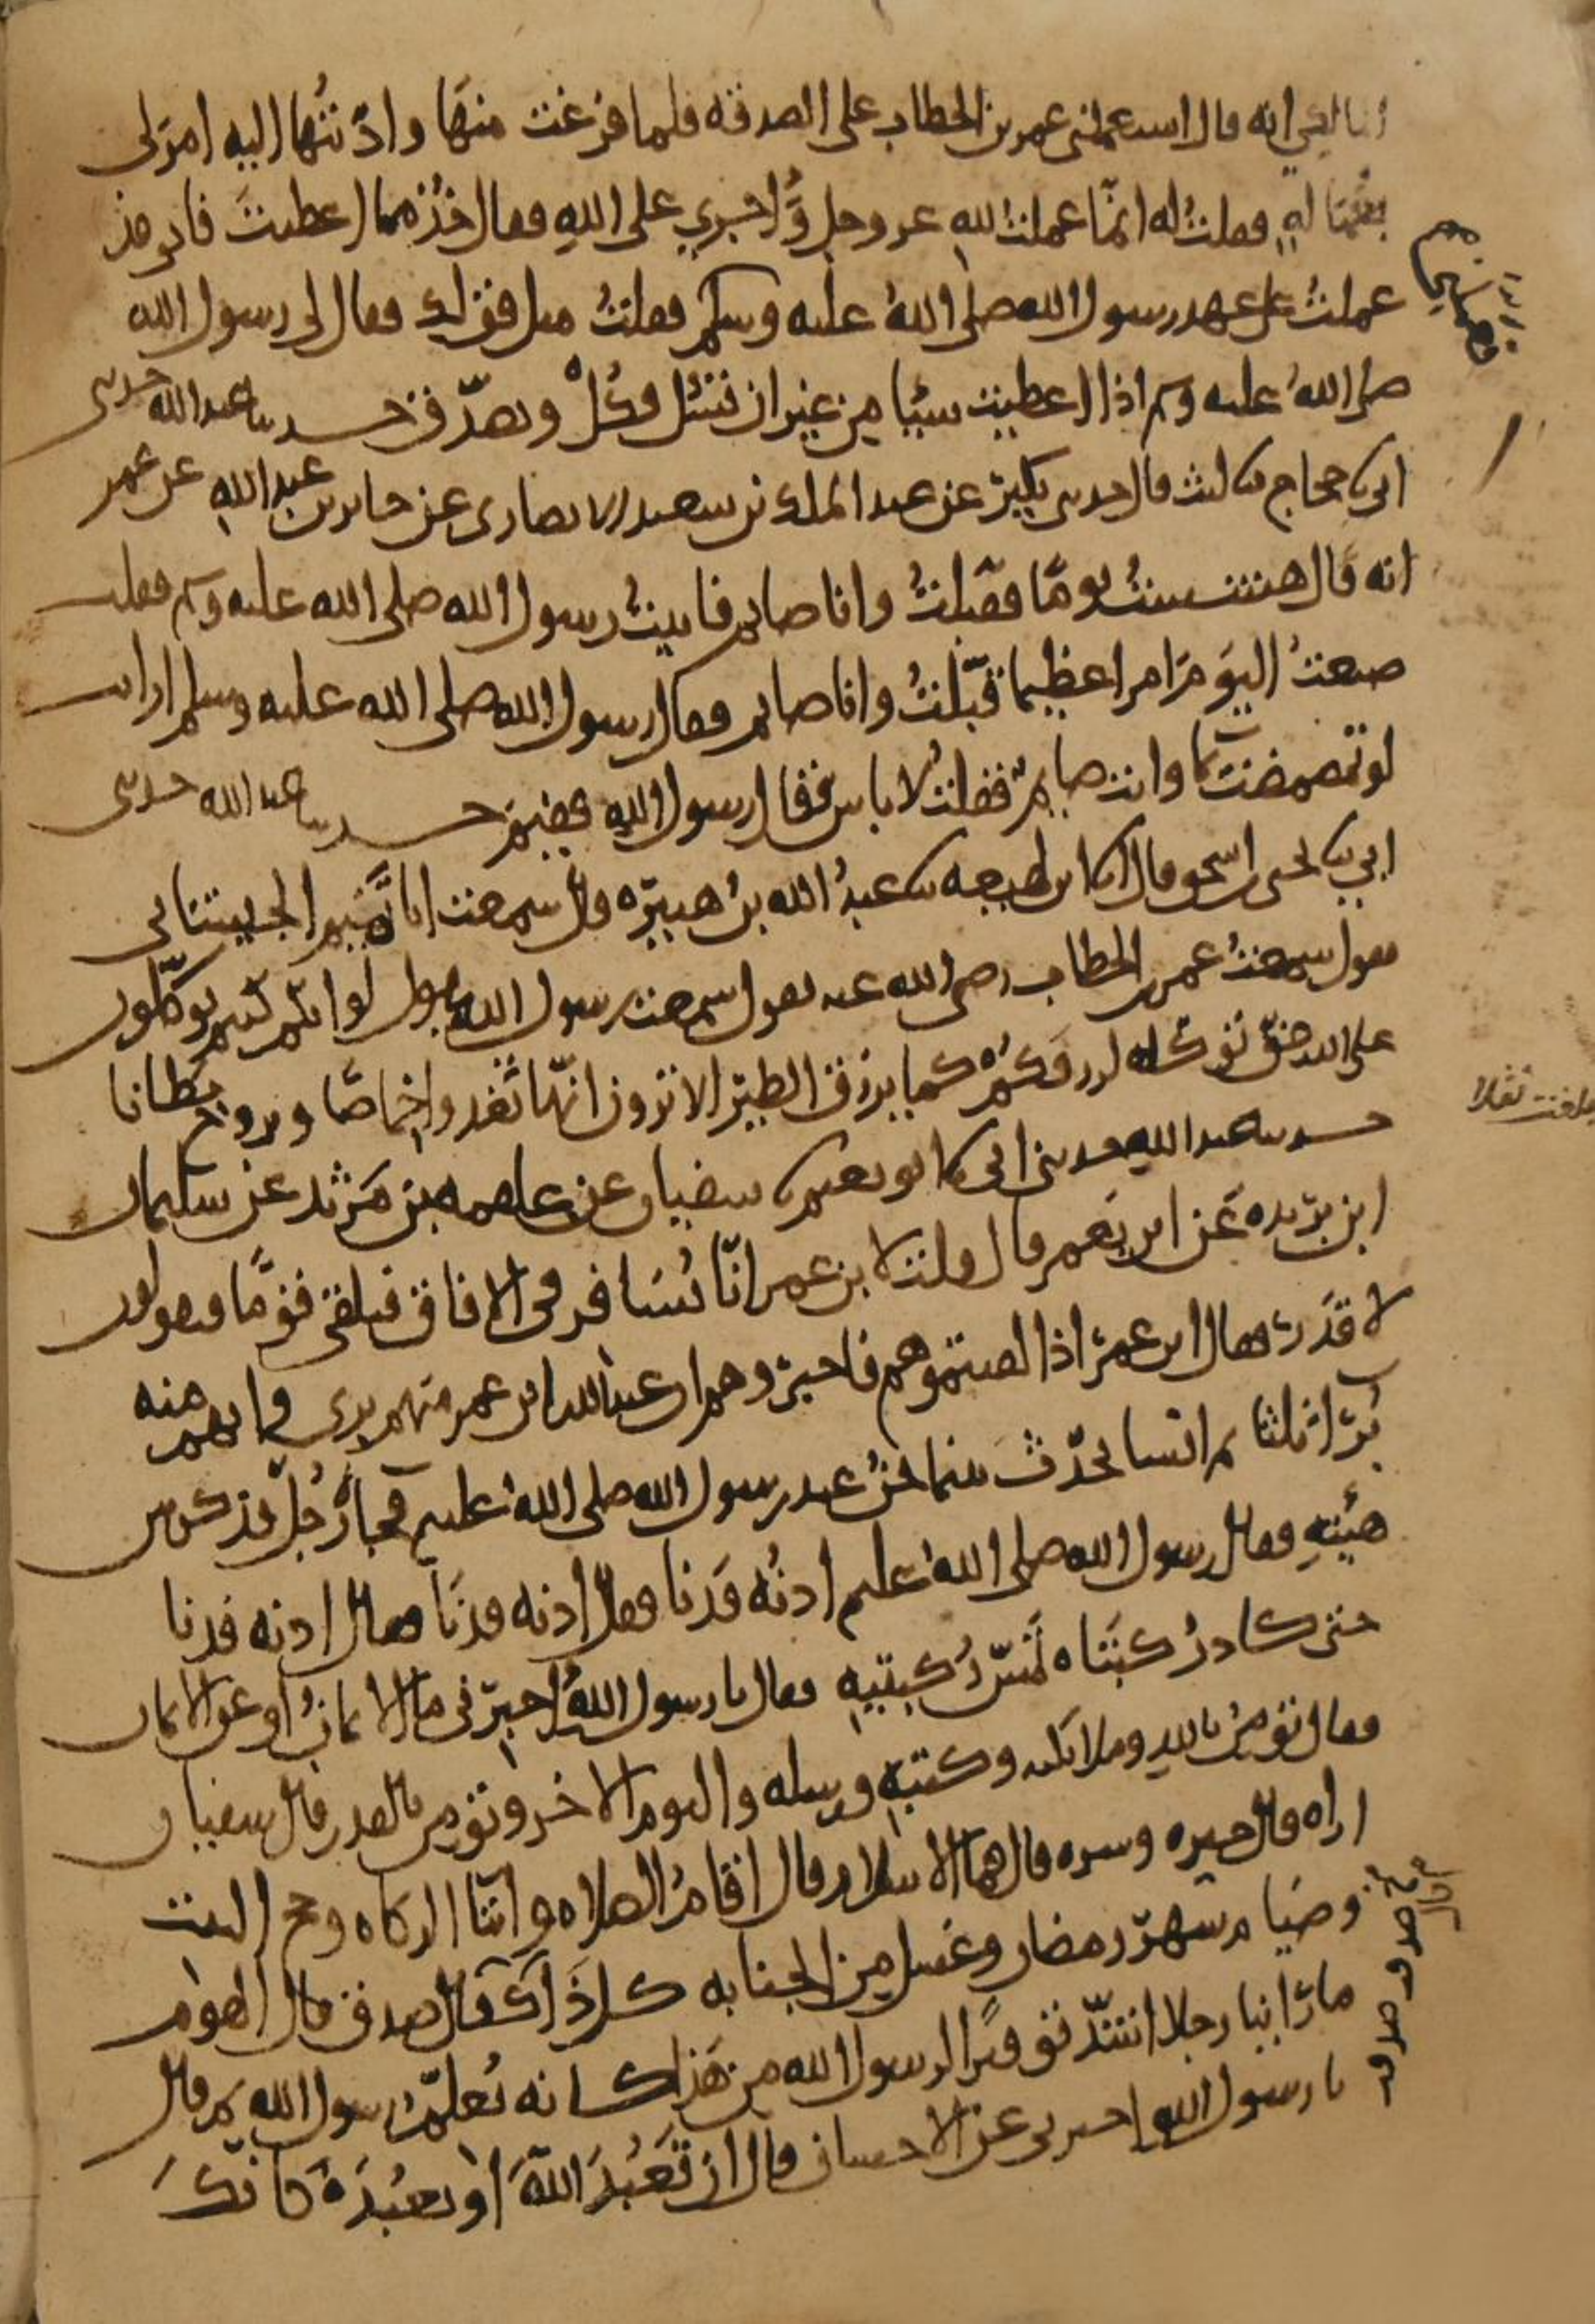 المالكي انه قال استعملني عمر بن الخطاب على الصدقه فلما فرغت منها وادّيتُها اليه امر لي
بعُمَالَهٍ فقلتُ له انمّا عملتُ للهِ عز وجل وَاَجري على اللهِ فقال خُذ مما اعطيتَ فاني قد
عملتُ على عهد رسول الله صلى اللهُ عليه وسلم فقلتُ مثل قولك فقال لي رسول الله
صلى اللهُ عليه وسلم اذا اعطيت شيئا مِن غير ان تسْئل فكُلْ وتصدّق حدثنا عبد الله حدثني
ابي نا حجاج نا ليث قال حدثني بكير عن عبد الملك بن سعيد الانصاري عن جابر بن عبد اللهِ عن عمر
انه قال هششتُ يومًا فقبّلتُ وانا صايم فاتيتُ رسول الله صلى الله عليه وسلم فقلت
صنعتُ اليوَم امرا عظيما قبّلتُ وانا صايم فقال رسول الله صلى الله عليه وسلم ارايت
لو تمضمضتَ بما وانت صايم فقلتُ لا باس فقال رسول اللهِ ففيَم حدثنا عبد الله حدثني
ابي نا يحيى بن اسحق قال انا ابن لهيعه نا عبدُ الله بنُ هبيرَه قال سمعت ابا تَميم الجيشاني
يقول سمعتُ عمر بن الخطاب رضي الله عنه يقول سمعت رسول الله يقول لو انكم كنتم توكّلون
على الله حقّ توكّله لرزقكُم كما يرزق الطيَر الا ترون انهّا تغدوا خِماصًا وتروح بِطانا
حدثنا عبد اللهِ حدثني ابي نا ابو نعيم نا سفيان عن علقمه بن مَرثد عن سليمان
ابن بُريده عَن ابن يَعمر قال قلت لابن عمر انّا نُسَافر في الافاق فنلقى قومًا يقولون
لا قَدَر فقال ابن عمر اذا لقيتموهم فاخبروهم ان عبد الله ابن عمر منهم بري وانهم منه
بُرَآ ثلثا ثم انشا يحدّث بينما نحنُ عند رسول الله صلى اللهُ عليه وسلم فجآ رَجُلٌ فذكر من
هيْئتهِ فقال رسول الله صلى اللهُ عليه وسلم ادنُه فدَنا فقال ادنه فدنَا فقال ادنه فدنا
حتى كاد رُكبَتاه تَمَسّ رُكبتيهِ فقال يا رسول اللهُ اخبرني ما الايمانُ او عن الايمان
فقال تؤمنُ باللهِ وملائكته وكتبهِ ورسله واليوم الاخر وتؤمن بالقدر قال سفيان
اراه قال خيره وشره قال فما الاسلام قال اقامُ الصلاه وايتآ الزكاه وحج البيت
وصيَام شهر رمضان وغسل مِن الجنابه كل ذَلك قال صدقت صدقت قال القوم
ما رَاينا رجلا اشدّ توقيرًا لرسول الله من هَذا كانه يُعلّم رسول الله ثم قال
يا رسول الله اخبرني عن الاحسان قال ان تَعَبُدَ اللهَ او تعبُدَه كانّكَ
بلغت نقلا